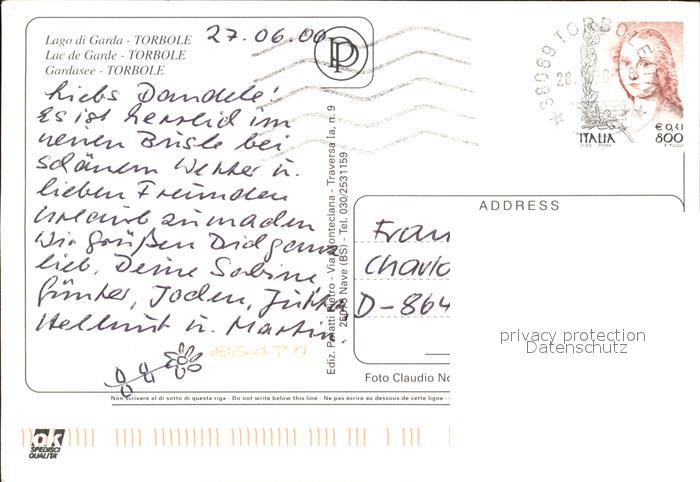 Lago di Garda - TORBOLE
Lac de Garde - TORBOLE
Gardasee - TORBOLE
27.06.00
Liebs Dandele!
Es ist herrlich im
neuen Bussle bei
schönem Wetter u.
lieben Freunden
Urlaub zu machen
Wir grüßen Dich ganz
lieb, Deine Sabine,
Günter, Jochen, Jutta
Hellmut u. Martin
86470
Ediz. Pietro - Via Monteclana - Traversa Ia, n. 9
25075 Nave (BS) - Tel. 030/2531159
38069 TORBOLE
28.
ITALIA
€ 0,41
800
ADDRESS
Fran
D-864
privacy protection
Datenschutz
Foto Claudio No
Non scrivere al di sotto di questa riga - Do not write below this line - Ne pas écrire au dessous de cette ligne -
ok
SPEDISCI
QUALITÀ